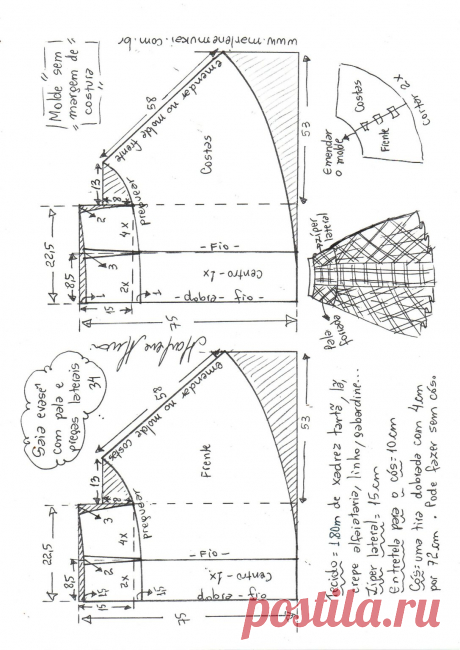 www.marlenemukai.com.br
"Molde sem
margem de
costura"
Costas
Frente
Cortar 2x
Emendar
o molde
58
emendar no molde frente
Costas
53
13
8
preguear
22,5
8,5
2
3
1
4x
2x
1
15
- Fio -
Centro - 1x
75
zíper
lateral
pala
forrada
Saia evasê
com pala e
pregas laterais
34
58
emendar no molde costas
Frente
53
13
8
preguear
22,5
8,5
3
2
4x
2x
15
- Fio -
Centro - 1x
75
Tecido = 1.80m de xadrez tartã, lã,
crepe alfaiataria, linho, gabardine...
Zíper lateral = 15cm
Entretela para o cós = 10cm
Cós: uma tira dobrada com 4cm
por 72cm. Pode fazer sem cós.
postila.ru